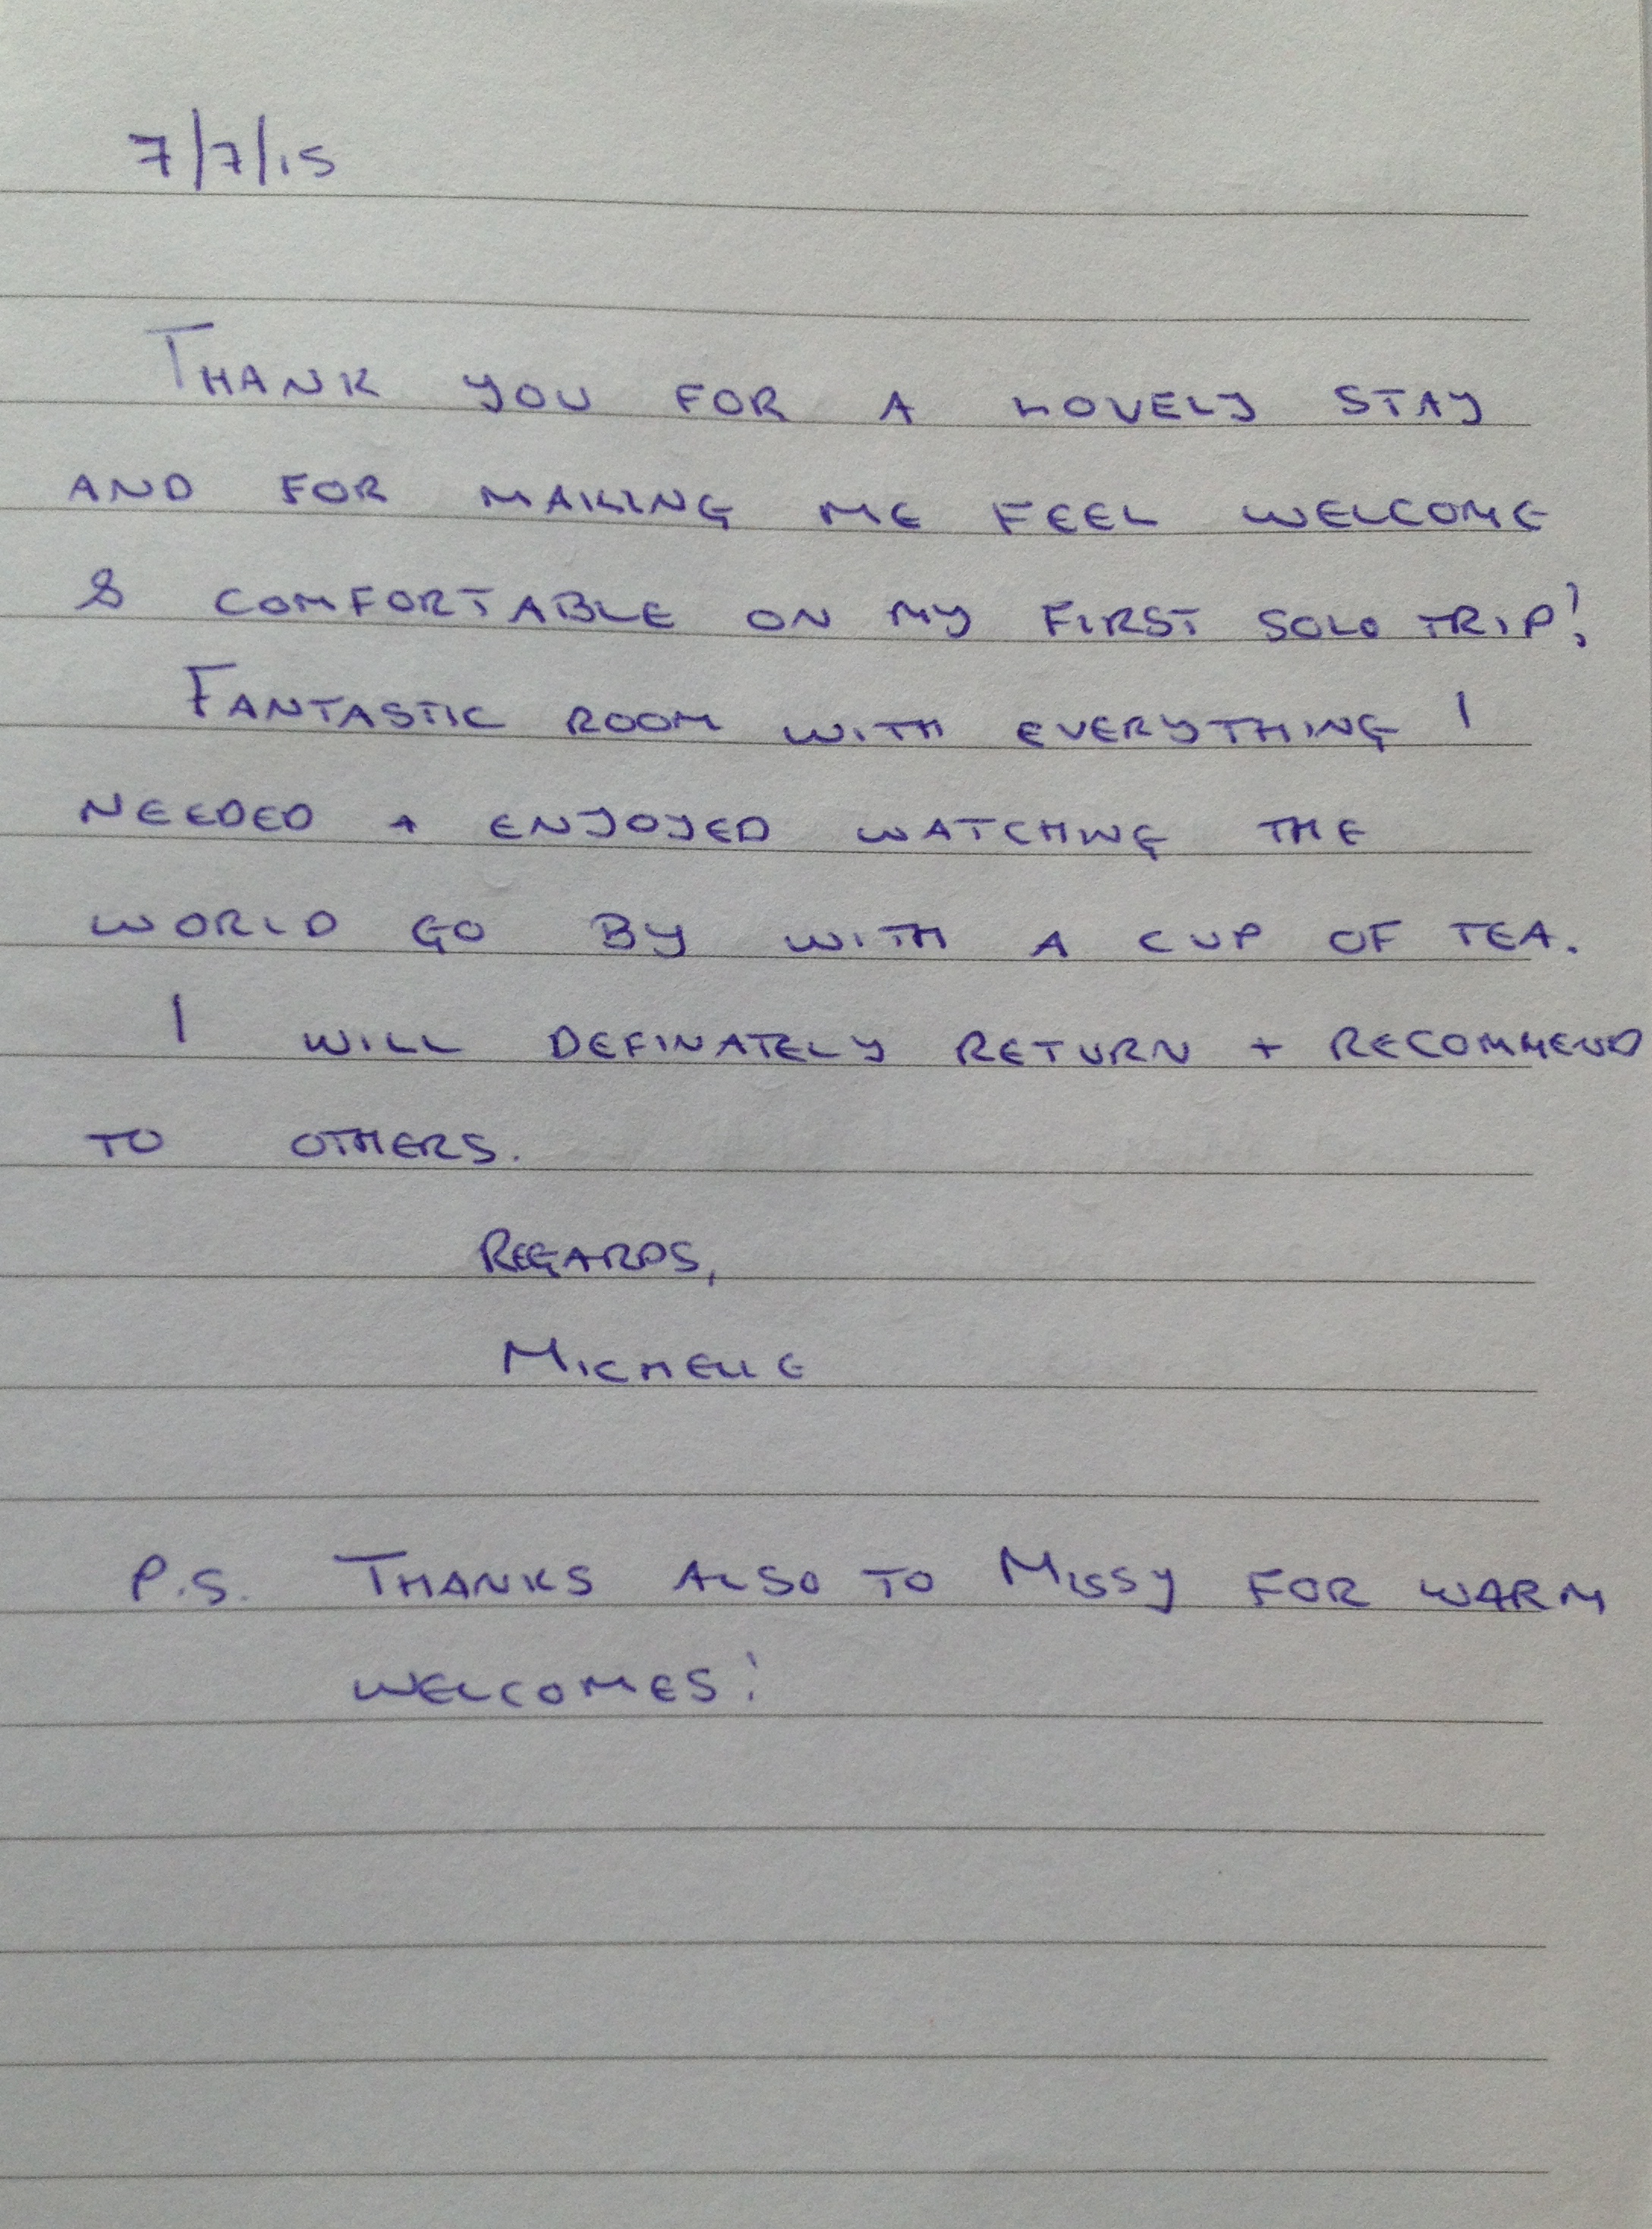 7/7/15
THANK YOU FOR A LOVELY STAY
AND FOR MAKING ME FEEL WELCOME
& COMFORTABLE ON MY FIRST SOLO TRIP!
FANTASTIC ROOM WITH EVERYTHING I
NEEDED + ENJOYED WATCHING THE
WORLD GO BY WITH A CUP OF TEA.
I WILL DEFINATELY RETURN + RECOMMEND
TO OTHERS.
REGARDS,
MICHELLE
P.S. THANKS ALSO TO MISSY FOR WARM
WELCOMES!